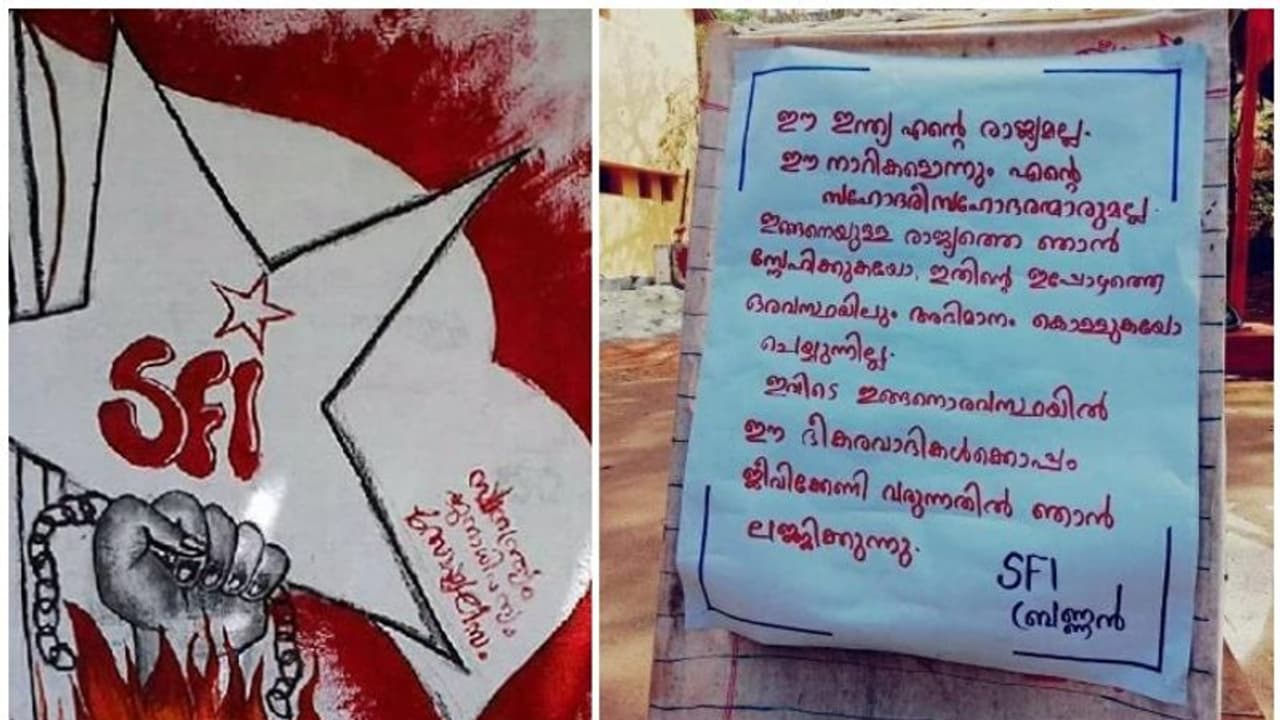 SFI
സ്വാതന്ത്ര്യം
ജനാധിപത്യം
സോഷ്യലിസം
ഈ ഇന്ത്യ എന്റെ രാജ്യമല്ല.
ഈ നാറികളൊന്നും എന്റെ
സഹോദരീസഹോദരന്മാരുമല്ല.
ഇങ്ങനെയുള്ള രാജ്യത്തെ ഞാൻ
സ്നേഹിക്കുകയോ, ഇതിന്റെ ഇപ്പോഴത്തെ
ദുരവസ്ഥയിലും അഭിമാനം കൊള്ളുകയോ
ചെയ്യുന്നില്ല.
ഇവിടെ ഇങ്ങനൊരവസ്ഥയിൽ
ഈ ഭീകരവാദികൾക്കൊപ്പം
ജീവിക്കേണി വരുന്നതിൽ ഞാൻ
ലജ്ജിക്കുന്നു.
SFI
ബ്രണ്ണൻ